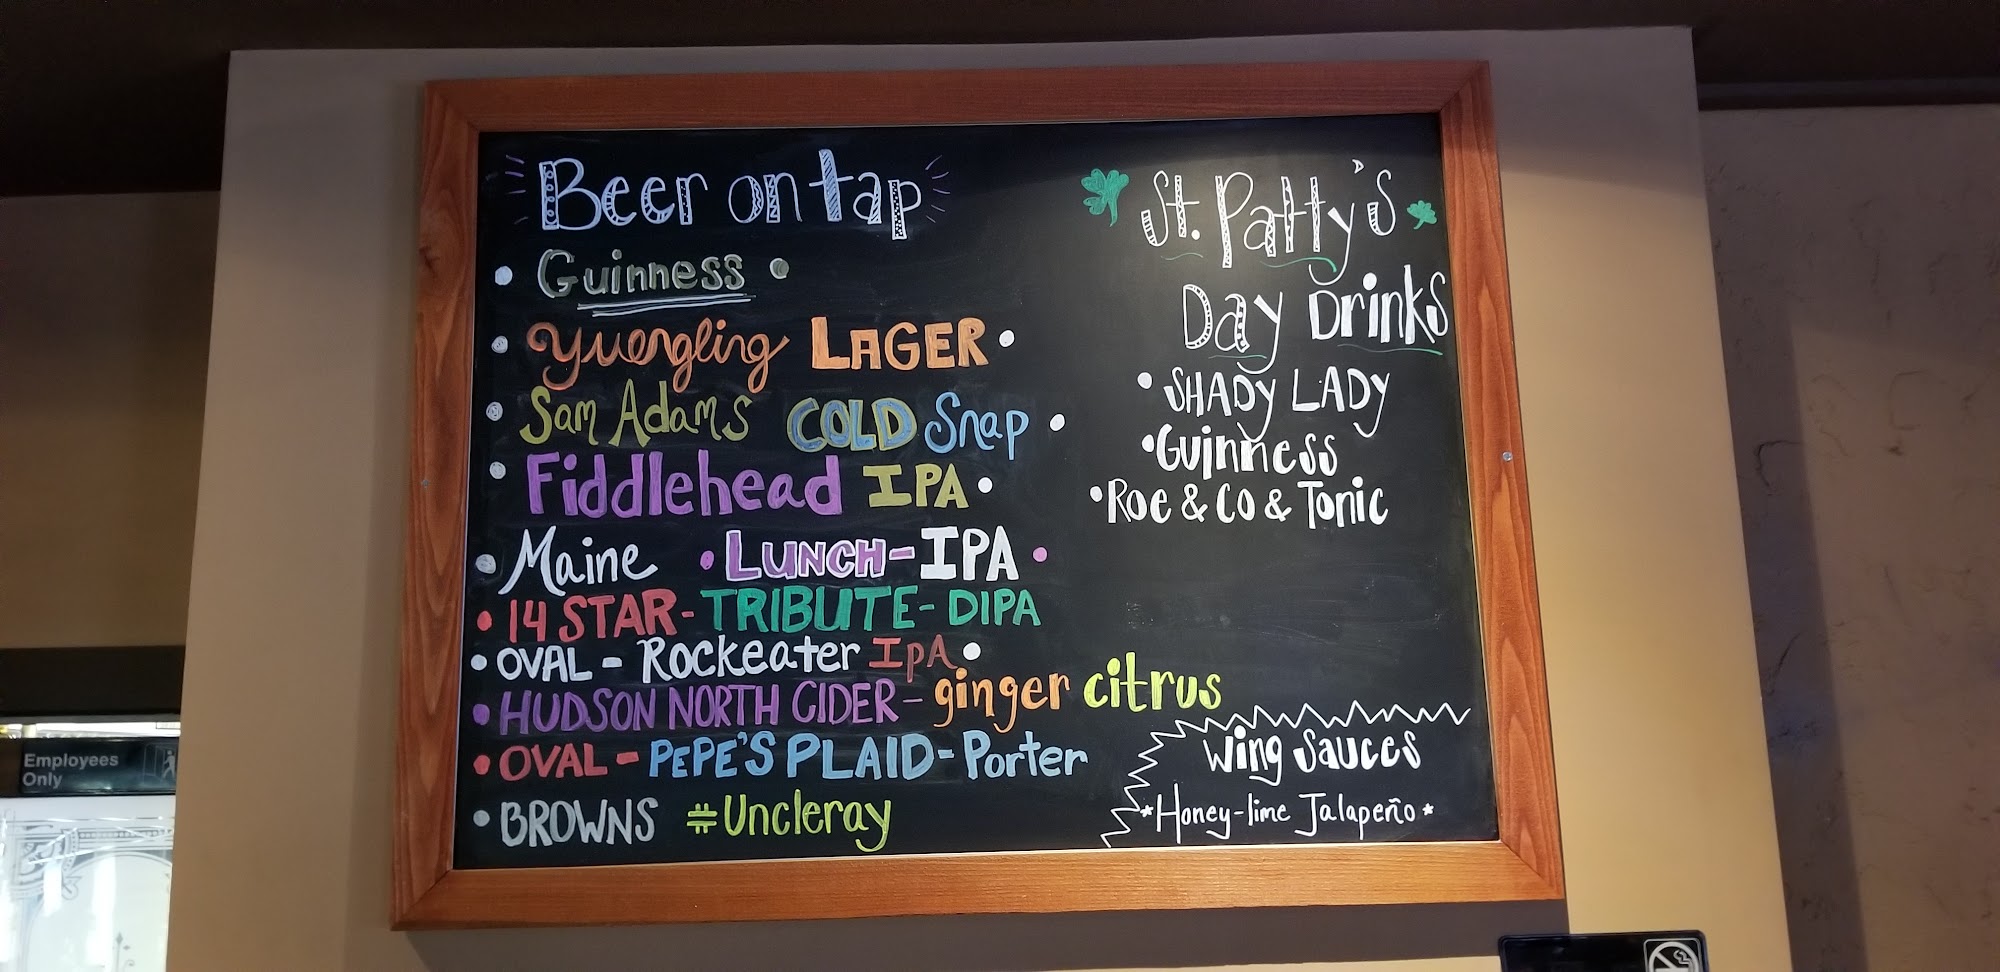 Beer on tap
Guinness
Yuengling LAGER
Sam Adams COLD Snap
Fiddlehead IPA
Maine • LUNCH-IPA
14 STAR-TRIBUTE-DIPA
OVAL - Rockeater IPA
HUDSON NORTH CIDER - ginger citrus
OVAL - PEPE'S PLAID - Porter
BROWNS #Uncleray
St. Patty's
Day Drinks
• SHADY LADY
• Guinness
• Roe & Co & Tonic
Wing Sauces
*Honey-lime Jalapeño*
Employees
Only